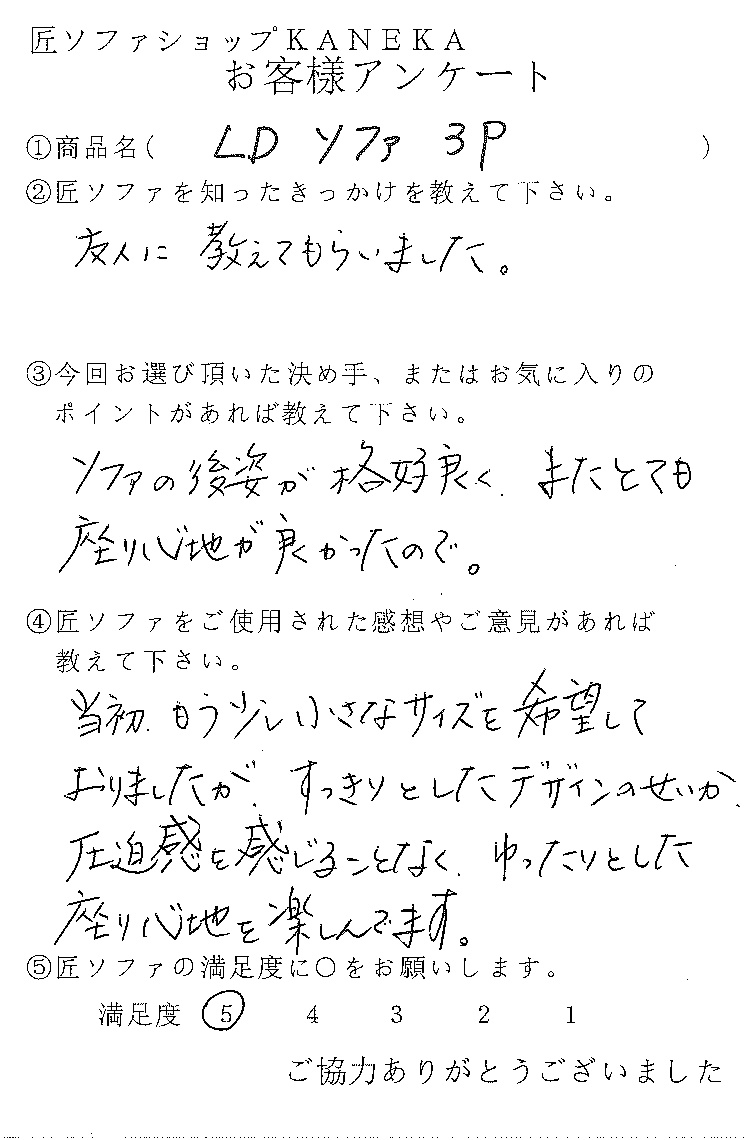 匠ソファショップKANEKA
お客様アンケート
①商品名( LD ソファ 3P )
②匠ソファを知ったきっかけを教えて下さい。
友人に 教えてもらいました。
③今回お選び頂いた決め手、またはお気に入りの
ポイントがあれば教えて下さい。
ソファの後姿が 格好良く、またとても
座り心地が良かったので。
④匠ソファをご使用された感想やご意見があれば
教えて下さい。
当初、もう少し小さなサイズを希望して
おりましたが、すっきりとしたデザインのせいか、
圧迫感を感じることなく、ゆったりとした
座り心地を楽しんでます。
⑤匠ソファの満足度に○をお願いします。
満足度 5 4 3 2 1
ご協力ありがとうございました